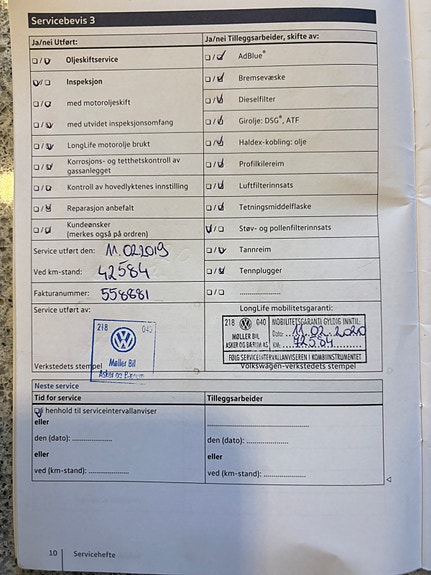 Servicebevis 3
Ja/nei Utført:
Ja/nei Tilleggsarbeider, skifte av:
Oljeskiftservice
AdBlue®
Inspeksjon
Bremsevæske
med motoroljeskift
Dieselfilter
med utvidet inspeksjonsomfang
Girolje: DSG®, ATF
LongLife motorolje brukt
Haldex-kobling: olje
Korrosjons- og tetthetskontroll av
gassanlegget
Profilkilereim
Kontroll av hovedlyktenes innstilling
Luftfilterinnsats
Reparasjon anbefalt
Tetningsmiddelflaske
Kundeønsker
(merkes også på ordren)
Støv- og pollenfilterinnsats
Service utført den: 11.02.2019
Tannreim
Ved km-stand: 42584
Tennplugger
Fakturanummer: 558881
Service utført av:
LongLife mobilitetsgaranti:
218 040
Møller Bil
Asker og Bærum
218 040
MØLLER BIL
ASKER OG BÆRUM AS
MOBILITETSGARANTI GYLDIG INNTIL:
Dato: 11.02.2020
KM: 72584
FØLG SERVICEINTERVALLANVISEREN I KOMBINSTRUMENTET
Verkstedets stempel
Volkswagen-verkstedets stempel
Neste service
Tid for service
Tilleggsarbeider
henhold til serviceintervallanviser
eller
den (dato): ....................
eller
den (dato): ....................
eller
ved (km-stand): ....................
ved (km-stand): ....................
10 Servicehefte